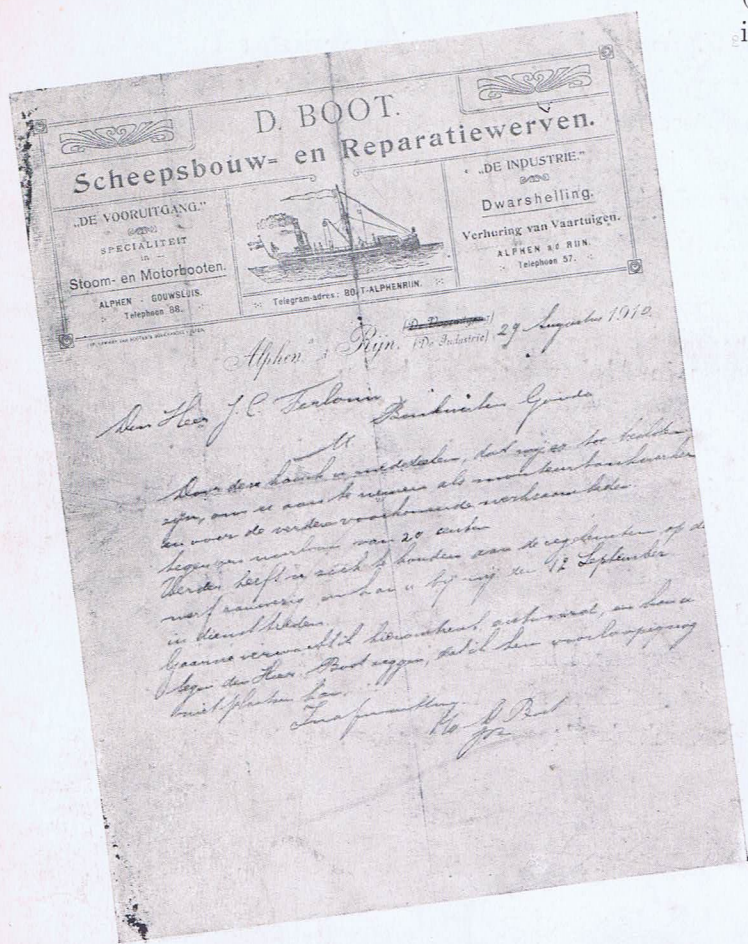 D. BOOT.
Scheepsbouw= en Reparatiewerven.
„DE VOORUITGANG.”
SPECIALITEIT
in
Stoom- en Motorbooten.
ALPHEN - GOUWSLUIS.
Telephoon 88.
Telegram-adres: BOOT-ALPHENRIJN.
„DE INDUSTRIE.”
Dwarshelling.
Verhuring van Vaartuigen.
ALPHEN a/d RIJN.
Telephoon 57.
Alphen a/d Rijn. (De Industrie) 29 Augustus 1910
Den Heer J. C. Gouda
M
Door deze haast u mededeelen, dat wij er toe besloten
zijn, om u aan te nemen als monteur bankwerker
en voor de verder voorkomende werkzaamheden
tegen een uurloon van 20 centen
Verder heeft u zich te houden aan de regelementen op de
werf en kan u bij mij den 12 September
in dienst treden.
Gaarne verwacht ik hieromtrent antwoord, en kan u
tegen den Heer Bout zeggen, dat ik hem voorloopig nog
niet plaatsen kan.
D Boot